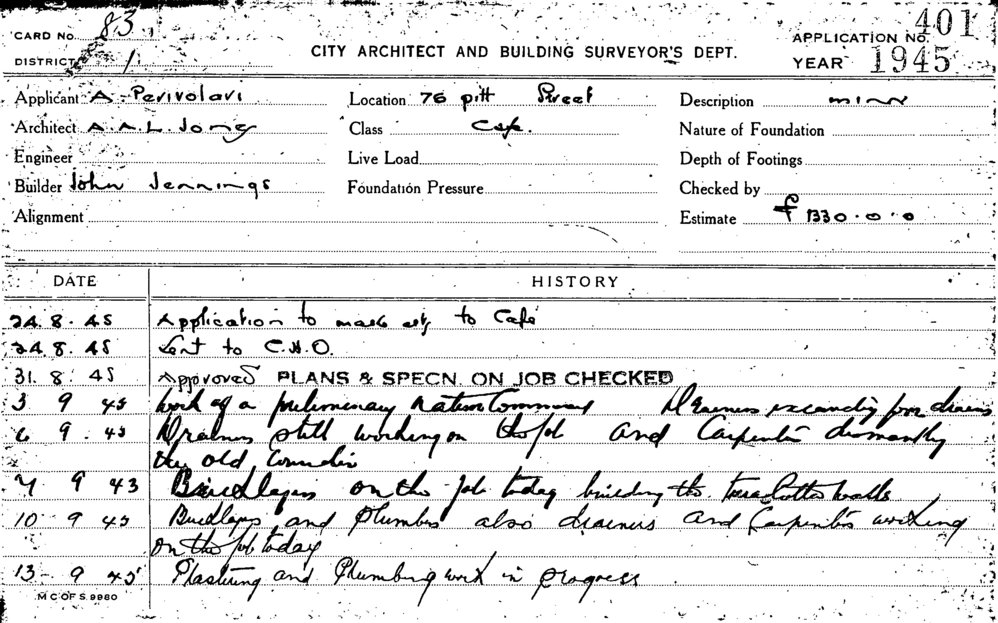 CARD No. 83
APPLICATION No. 401
DISTRICT 1
CITY ARCHITECT AND BUILDING SURVEYOR'S DEPT.
YEAR 1945
Applicant A. Perivolari
Location 76 pitt Street
Description minor
Architect A. A. L. Jong
Class Cafe.
Nature of Foundation
Engineer
Live Load
Depth of Footings
Builder John Jennings
Foundation Pressure
Checked by
Alignment
Estimate £ 1330.0.0
DATE HISTORY
24.8.45 Application to make to Cafe
24.8.45 Sent to C.H.O.
31.8.45 Approved PLANS & SPECN. ON JOB CHECKED
3 9 45 Work of a preliminary nature Commenced Drainers excavating for drains
6 9.45 Drainers still working on the job and Carpenters dismantling
the old
7 9 43 Bricklayers on the job today building the terra Cotta walls
10 9 45 Bricklayers and plumbers also drainers and Carpenters working
on the job today
13 - 9 45 Plastering and Plumbing work in progress
M C OF S. 9980